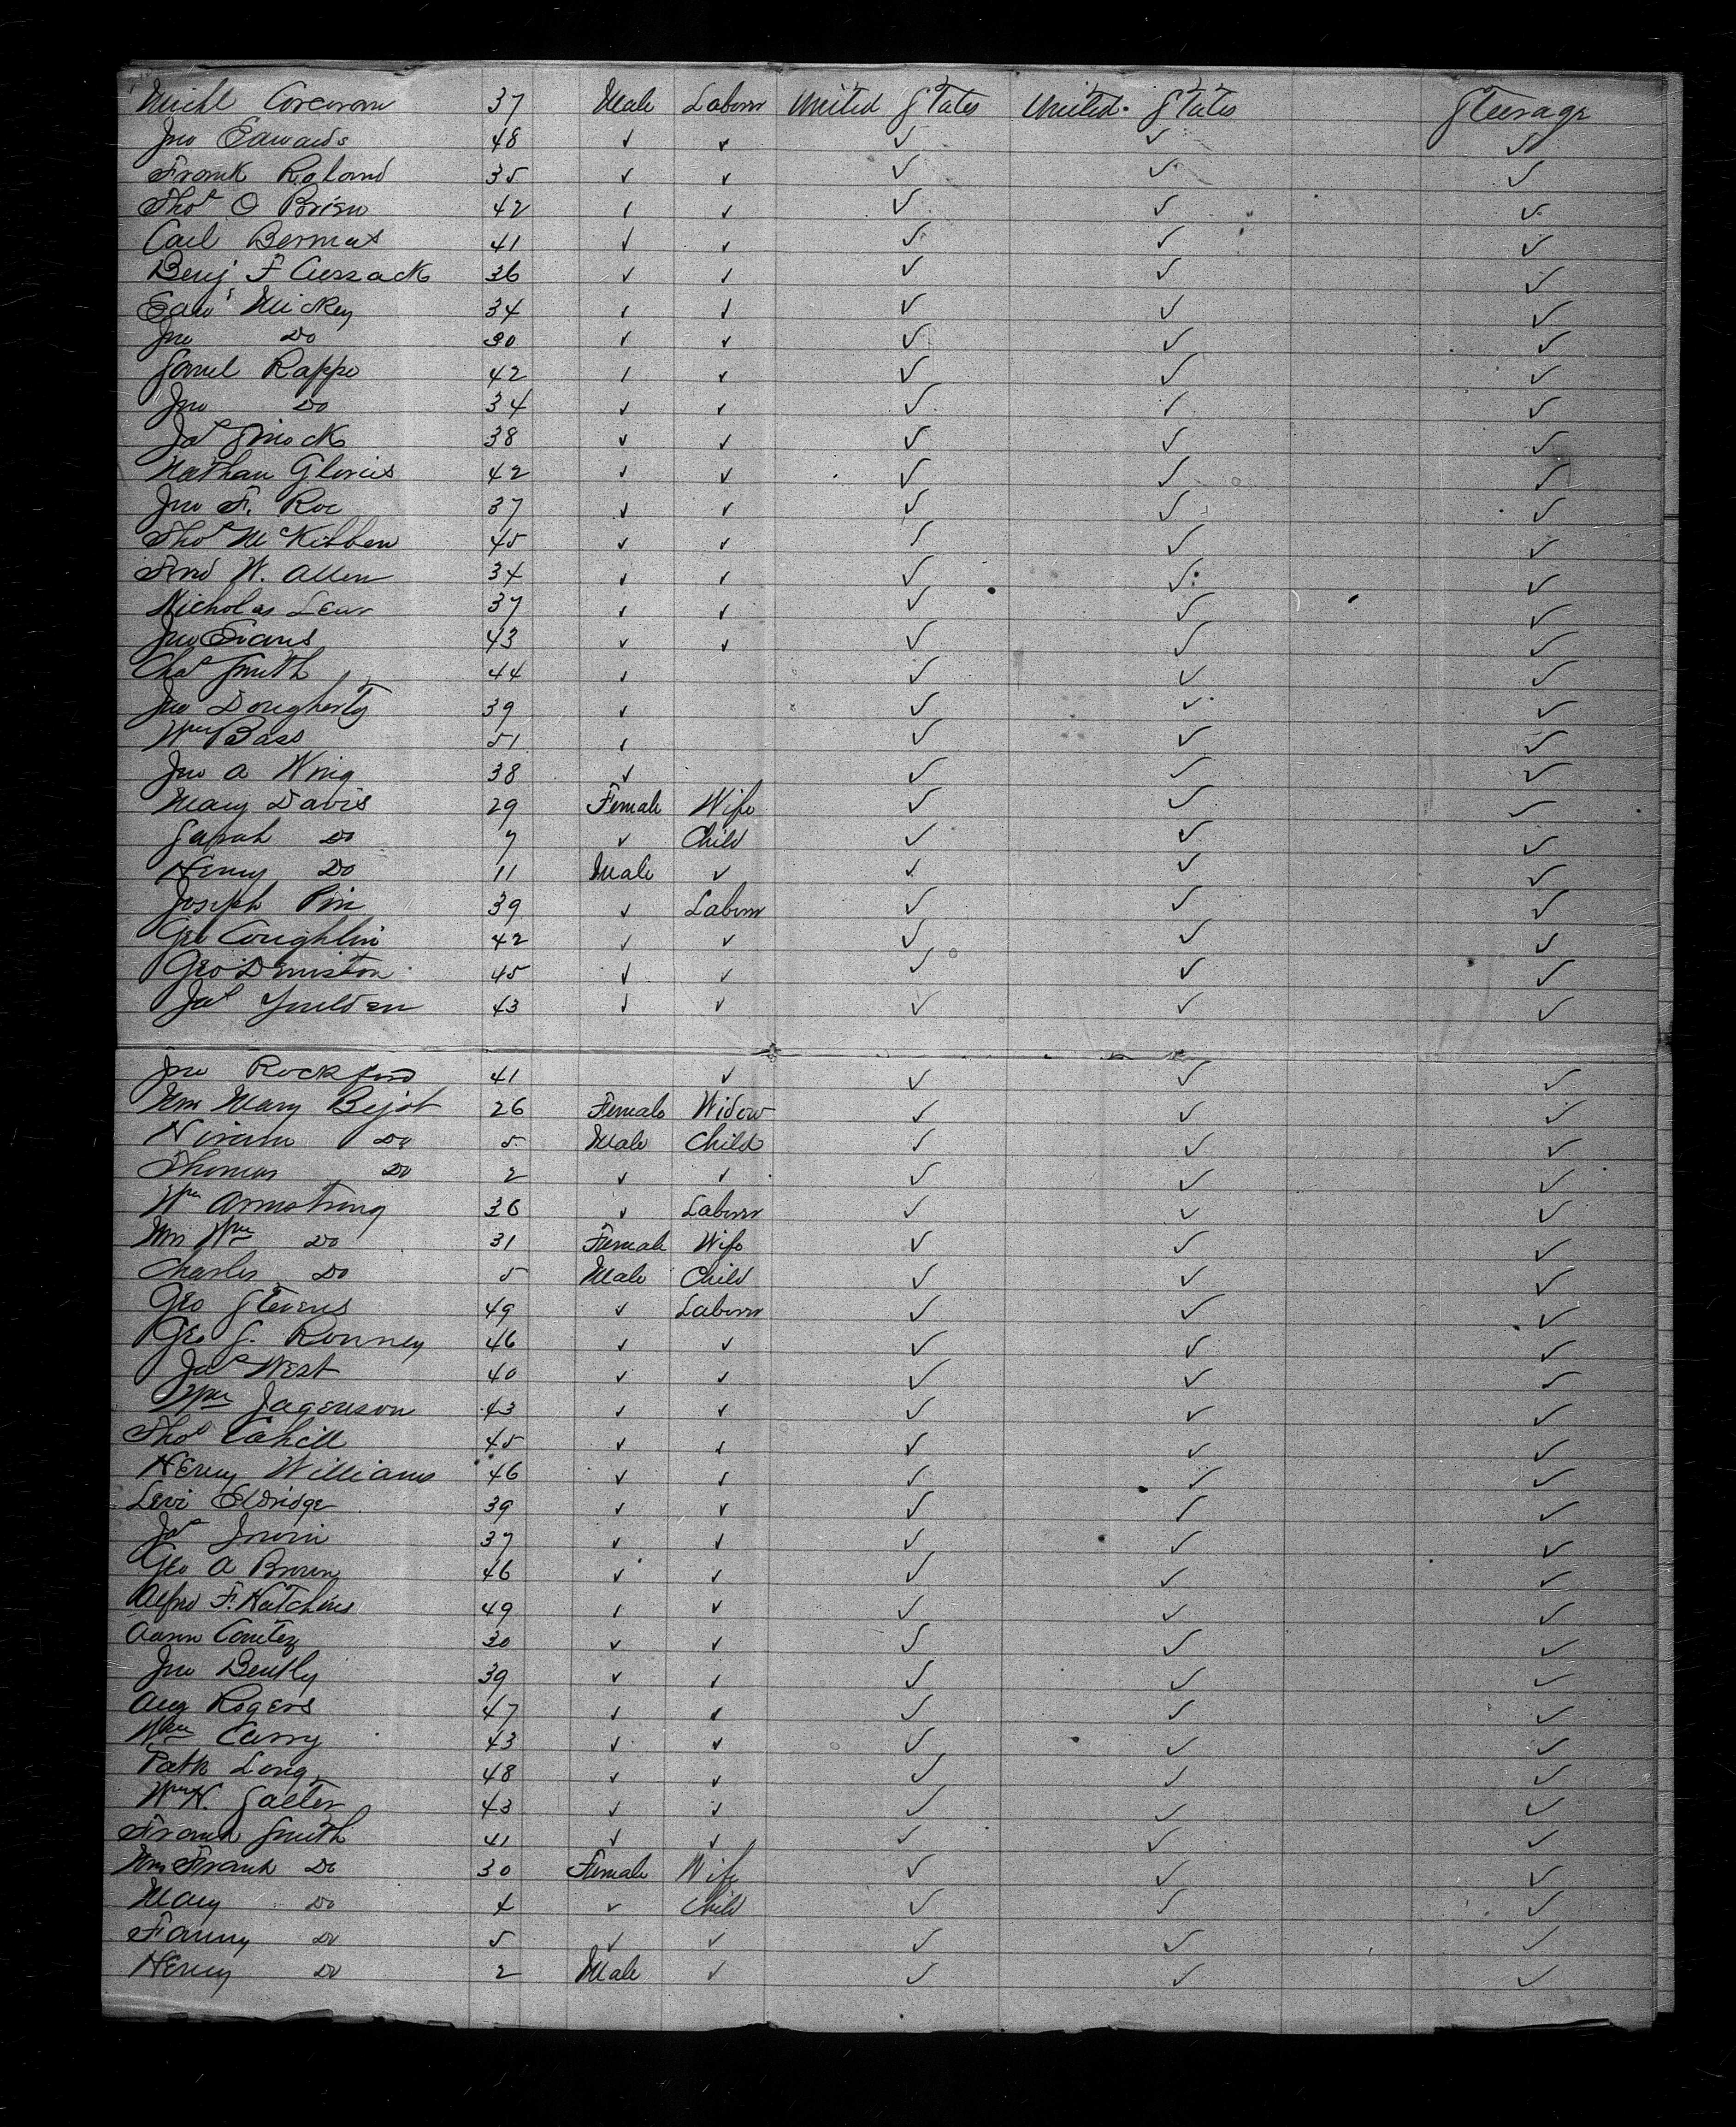 Michl Corcoran 37 Male Laborer United States United States Steerage
Jno Edwards 48 ✓ ✓ ✓ ✓ ✓
Frank Roland 35 ✓ ✓ ✓ ✓ ✓
Thos O Brien 42 ✓ ✓ ✓ ✓ ✓
Carl Bermas 41 ✓ ✓ ✓ ✓ ✓
Benj F Cussack 36 ✓ ✓ ✓ ✓ ✓
Edwd Mickey 34 ✓ ✓ ✓ ✓ ✓
Jno Do 30 ✓ ✓ ✓ ✓ ✓
Saml Rappe 42 ✓ ✓ ✓ ✓ ✓
Jno Do 34 ✓ ✓ ✓ ✓ ✓
Jas Smock 38 ✓ ✓ ✓ ✓ ✓
Nathan 42 ✓ ✓ ✓ ✓ ✓
Jno F. Roe 37 ✓ ✓ ✓ ✓ ✓
Thos McKibben 45 ✓ ✓ ✓ ✓ ✓
Fred W. Allen 34 ✓ ✓ ✓ ✓ ✓
Nicholas 37 ✓ ✓ ✓ ✓ ✓
Jno Evans 43 ✓ ✓ ✓ ✓ ✓
Chas Smith 44 ✓ ✓ ✓ ✓
Jno Dougherty 39 ✓ ✓ ✓ ✓
Wm Bass 51 ✓ ✓ ✓ ✓
Jno A Wing 38 ✓ ✓ ✓ ✓
Mary Davis 29 Female Wife ✓ ✓ ✓
Sarah Do 7 ✓ Child ✓ ✓ ✓
Henry Do 11 Male ✓ ✓ ✓ ✓
Joseph 39 ✓ Laborer ✓ ✓ ✓
Geo Coughlin 42 ✓ ✓ ✓ ✓ ✓
Geo Deniston 45 ✓ ✓ ✓ ✓ ✓
Jas 43 ✓ ✓ ✓ ✓ ✓
Jno Rockford 41 ✓ ✓ ✓ ✓
Mrs Mary Bejot 26 Female Widow ✓ ✓ ✓
Hiram Do 5 Male Child ✓ ✓ ✓
Thomas Do 2 ✓ ✓ ✓ ✓ ✓
Wm Armstrong 36 ✓ Laborer ✓ ✓ ✓
Mrs Wm Do 31 Female Wife ✓ ✓ ✓
Charles Do 5 Male Child ✓ ✓ ✓
Geo Stevens 49 ✓ Laborer ✓ ✓ ✓
Geo S. Ronney 46 ✓ ✓ ✓ ✓ ✓
Jas West 40 ✓ ✓ ✓ ✓ ✓
Wm Jagerson 43 ✓ ✓ ✓ ✓ ✓
Thos Cahill 45 ✓ ✓ ✓ ✓ ✓
Henry Williams 46 ✓ ✓ ✓ ✓ ✓
Levi Eldridge 39 ✓ ✓ ✓ ✓ ✓
Jas Irwin 37 ✓ ✓ ✓ ✓ ✓
Geo A Brown 46 ✓ ✓ ✓ ✓ ✓
Alfred F. Hutchins 49 ✓ ✓ ✓ ✓ ✓
Aaron 30 ✓ ✓ ✓ ✓ ✓
Jno Bently 39 ✓ ✓ ✓ ✓ ✓
Aug Rogers 47 ✓ ✓ ✓ ✓ ✓
Wm Curry 43 ✓ ✓ ✓ ✓ ✓
Patk Long 48 ✓ ✓ ✓ ✓ ✓
Wm H. Salter 43 ✓ ✓ ✓ ✓ ✓
Frank Smith 41 ✓ ✓ ✓ ✓ ✓
Mrs Frank Do 30 Female Wife ✓ ✓ ✓
Mary Do 4 ✓ Child ✓ ✓ ✓
Fanny Do 5 ✓ ✓ ✓ ✓ ✓
Henry Do 2 Male ✓ ✓ ✓ ✓